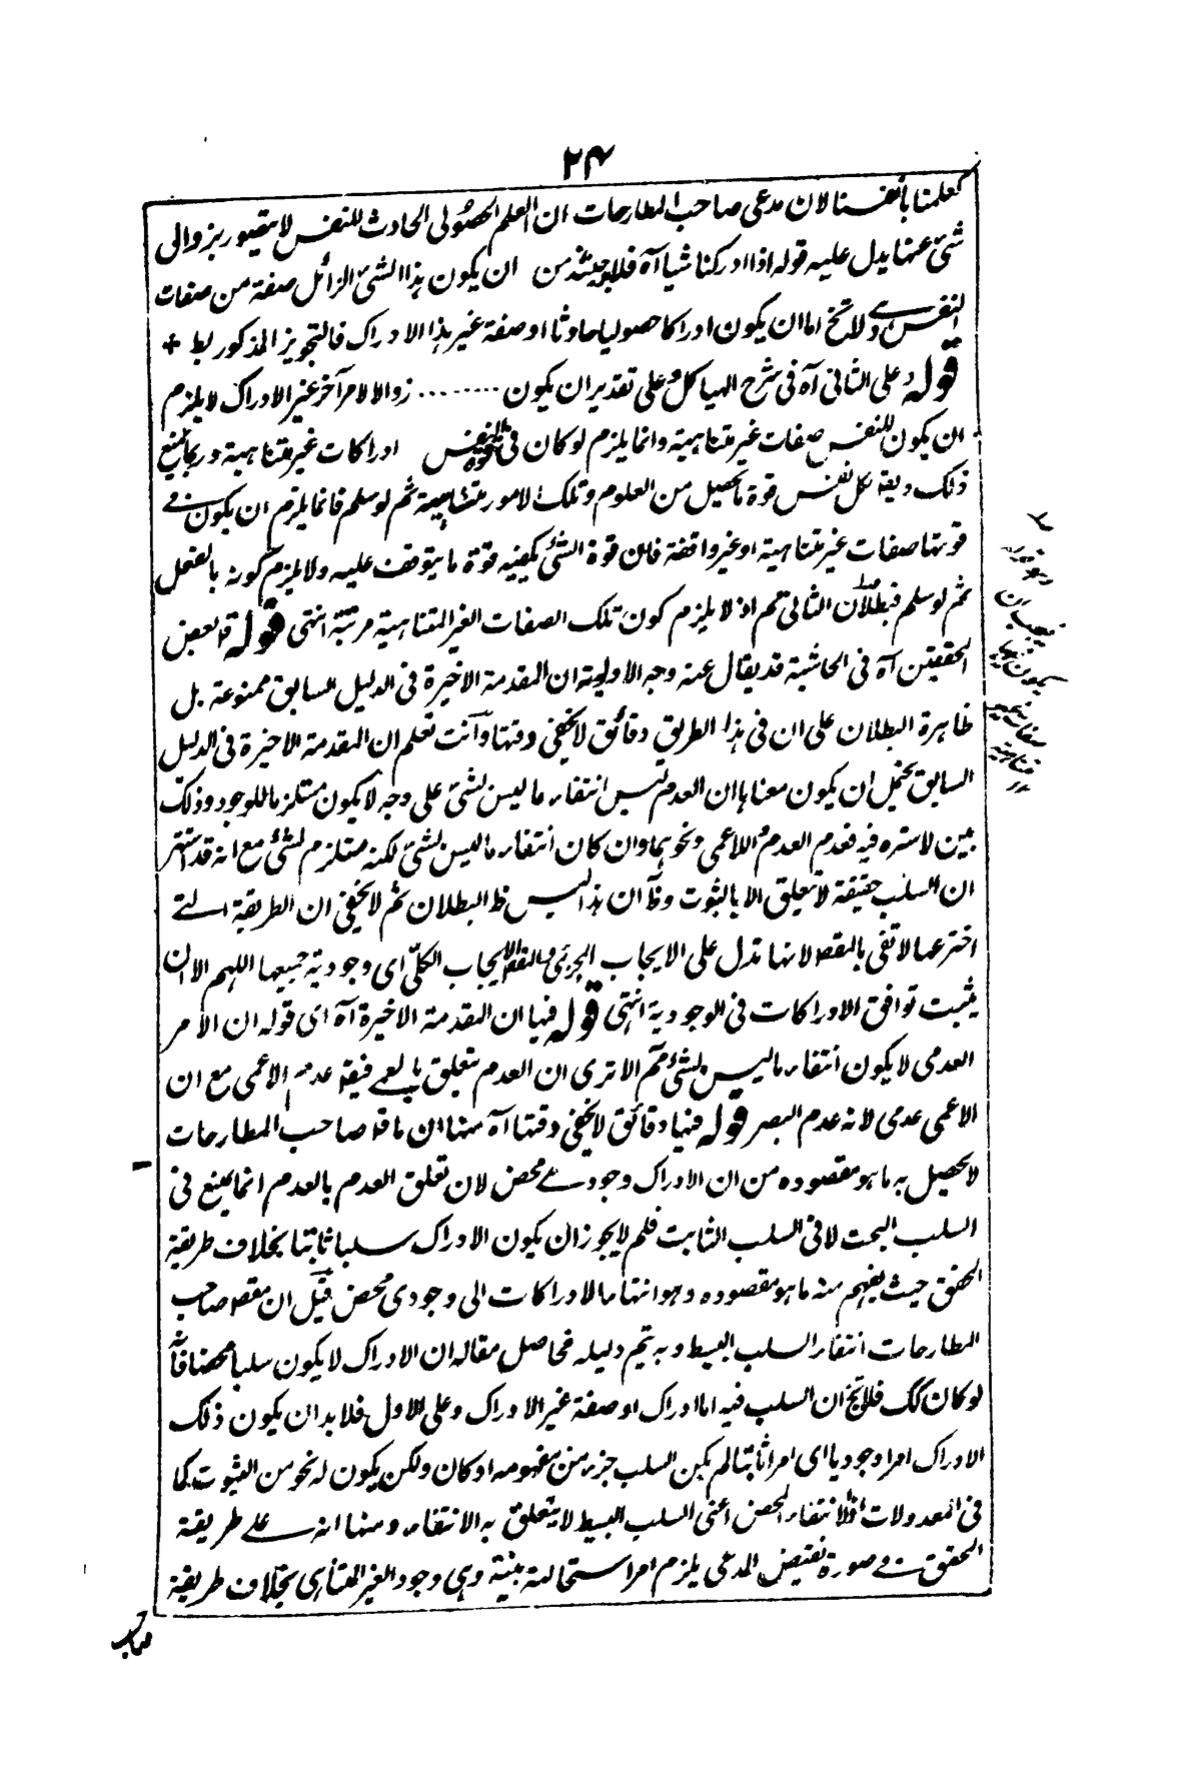 ۲۴
كعلمنا بأنفسنا لان مدعى صاحب المطارحات ان العلم الحصولى الحادث للنفس لا يتصور بزوال
شئ عنها يدل عليه قوله اذا ادركنا شيأ آه فلابد حينئذ من ان يكون هذا الشئ الزائل صفة من صفات
النفس ولا يخ اما ان يكون ادراكا حصوليا حادثا او صفة غير هذا الادراك فالتجويز المذكور بط +
قوله وعلى الثانى آه فى شرح الهياكل وعلى تقدير ان يكون ........ زوالا لامر آخر غير الادراك لا يلزم
ان يكون للنفس صفات غير متناهية وانما يلزم لو كان فى قوة النفس ادراكات غير متناهية وربما يمنع
ذلك ويقه لكل نفس قوة ما تحصيل من العلوم وتلك الامور متناهية ثم لو سلم فانما يلزم ان يكون فى
قوتها صفات غير متناهية او غير واقفة فان قوة الشئ يكفيه قوة ما يتوقف عليه ولا يلزم كونه بالفعل
ثم لو سلم فبطلان الثانى مم اذ لا يلزم كون تلك الصفات الغير المتناهية مرتبة انتهى قوله قا بعض
المحققين آه فى الحاشية قد يقال عنه وجه الاولوية ان المقدمة الاخيرة فى الدليل السابق ممنوعة بل
ظاهرة البطلان على ان فى هذا الطريق دقائق لا يخفى دقتها وأنت تعلم ان المقدمة الاخيرة فى الدليل
السابق يحتمل ان يكون معناها ان العدم ليس انتفاء ما ليس بشئ على وجه لا يكون مستلزما للوجود وذلك
بين لا سترة فيه فعدم العدم واللاعمى ونحوهما وان كان انتفاء ما ليس بشئ لكنه مستلزم لشئ مع انه قد اشتهر
ان السلب حقيقة لا يتعلق الا بالثبوت وظ ان هذا ليس ظ البطلان ثم لا يخفى ان الطريقة التى
اخترعها لا تفى بالمقصه لانها تدل على الايجاب الجزئى والمقصه الايجاب الكلى اى وجودية جميعها اللهم الا ان
يثبت توافق الادراكات فى الوجودية انتهى قوله فيها ان المقدمة الاخيرة آه اى قوله ان الامر
العدمى لا يكون انتفاء ما ليس بشئ مم الا ترى ان العدم يتعلق بالعمى فيقه عدم الاعمى مع ان
الاعمى عدمى لانه عدم البصر قوله فيها دقائق لا يخفى دقتها آه منها ان ما قا صاحب المطارحات
لا يحصل به ما هو مقصوده من ان الادراك وجودى محض لان تعلق العدم بالعدم انما يمنع فى
السلب البحت لا فى السلب الثابت فلم لا يجوز ان يكون الادراك سلبا ثابتا بخلاف طريقة
المحقق حيث يفهم منه ما هو مقصوده وهو انتهاء الادراكات الى وجودى محض قيل ان مقصه صاحب
المطارحات انتفاء السلب البسيط وبه يتم دليله فحاصل مقاله ان الادراك لا يكون سلبا محضا فانه
لو كان كك فلا يخ ان السلب فيه اما ادراك او صفة غير الادراك وعلى الاول فلابد ان يكون ذلك
الادراك امرا وجوديا اى امرا ثابتا لم يكن السلب جزء من مفهومه او كان ولكن يكون له نحو من الثبوت كما
فى المعدولات اذ الانتفاء المحض اعنى السلب البسيط لا يتعلق به الانتفاء ومنها انه على طريقة
المحقق فى صورة نقيض المدعى يلزم امر استحالته بينة وهى وجود الغير المتناهى بخلاف طريقة